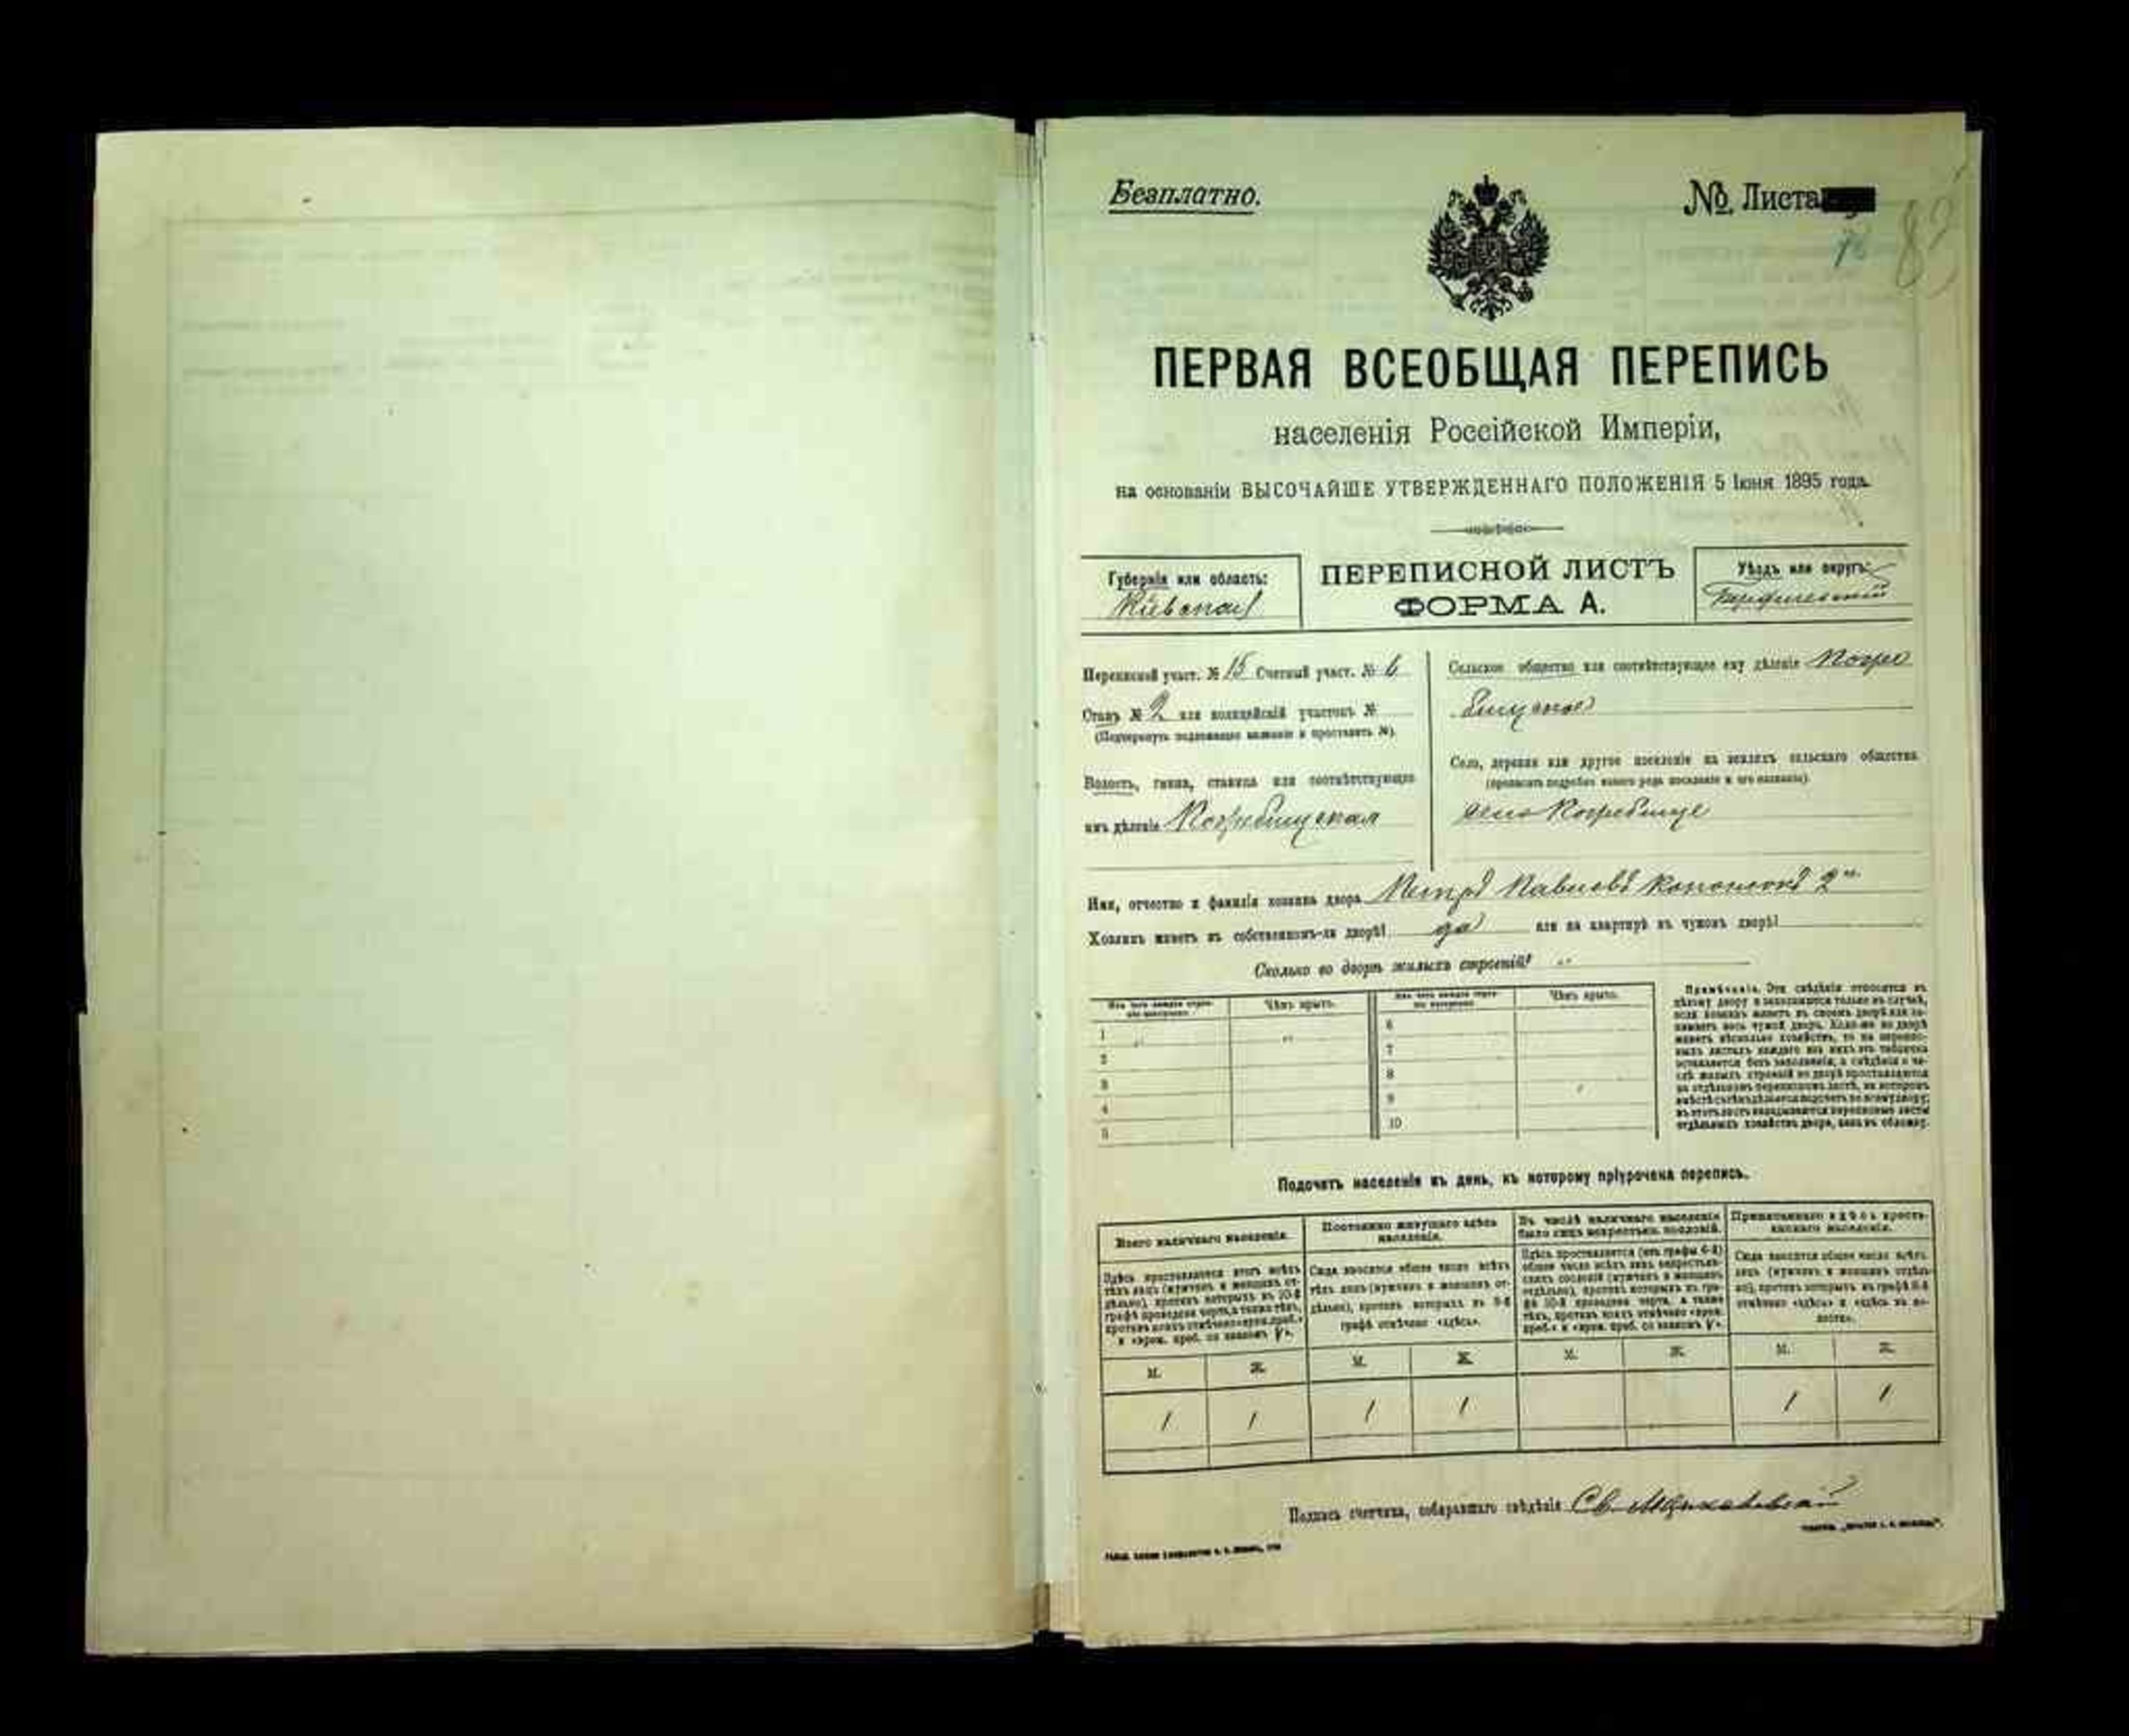 Безплатно.
№ Листа
ПЕРВАЯ ВСЕОБЩАЯ ПЕРЕПИСЬ
населенія Россійской Имперіи,
на основаніи ВЫСОЧАЙШЕ УТВЕРЖДЕННАГО ПОЛОЖЕНІЯ 5 Іюня 1895 года.
Губернія или область:
Кіевская
ПЕРЕПИСНОЙ ЛИСТЪ
ФОРМА А.
Уѣздъ или округъ:
Переписной участ. № 15 Счетный участ. № 6
Станъ № 2 или полицейскій участокъ №
(Подчеркнуть подлежащее названіе и проставить №).
Волость, гмина, станица или соотвѣтствующее
имъ дѣленіе Погребищская
Сельское общество или соотвѣтствующее ему дѣленіе Погре
бищское
Село, деревня или другое поселеніе на земляхъ сельскаго общества
(прописать подробно какого рода поселеніе и его названіе).
село Погребище
Имя, отчество и фамилія хозяина двора Петръ Павловъ 2й
Хозяинъ живетъ въ собственномъ-ли дворѣ? да или на квартирѣ въ чужомъ дворѣ?
Сколько во дворѣ жилыхъ строеній? "
Чѣмъ крыто.
Чѣмъ крыто.
1 " "
2
3
4
5
6
7
8
9
10
Примѣчаніе. Эти свѣдѣнія относятся къ
цѣлому двору и заполняются только въ случаѣ,
если хозяинъ живетъ въ своемъ дворѣ или за-
нимаетъ весь чужой дворъ. Если-же во дворѣ
живетъ нѣсколько хозяйствъ, то на перепис-
ныхъ листахъ каждаго изъ нихъ эта табличка
оставляется безъ заполненія, а свѣдѣнія о чи-
слѣ жилыхъ строеній во дворѣ проставляются
на отдѣльномъ переписномъ листѣ, на которомъ
вмѣстѣ съ тѣмъ дѣлается подсчетъ по всему двору;
въ этотъ листъ вкладываются переписные листы
отдѣльныхъ хозяйствъ двора, какъ въ обложку.
Подсчетъ населенія въ день, къ которому пріурочена перепись.
Всего наличнаго населенія.
Постоянно живущаго здѣсь
населенія.
Въ числѣ наличнаго населенія
было лицъ некрестьян. сословій.
Приписаннаго здѣсь кресть-
янскаго населенія.
Здѣсь проставляется итогъ всѣхъ
тѣхъ лицъ (мужчинъ и женщинъ от-
дѣльно), противъ которыхъ въ 10-й
графѣ проведена черта, а также тѣхъ,
противъ коихъ отмѣчено «врем. преб.»
Сюда вносится общее число всѣхъ
тѣхъ лицъ (мужчинъ и женщинъ от-
дѣльно), противъ которыхъ въ 9-й
графѣ отмѣчено «здѣсь».
Сюда вносится общее число всѣхъ
лицъ (мужчинъ и женщинъ отдѣль-
но), противъ которыхъ въ графѣ 8-й
отмѣчено «здѣсь» и «здѣсь въ во-
лости».
М. Ж. М. Ж. М. Ж. М. Ж.
1 1 1 1 1 1
Подпись счетчика, собиравшаго свѣдѣнія